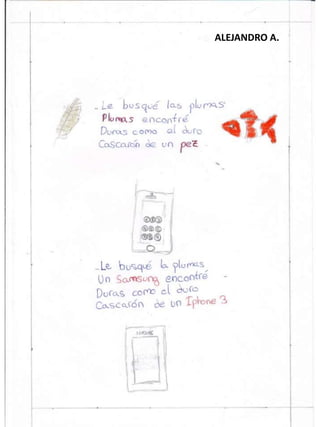 ALEJANDRO A.
- Le busqué las plumas
Plumas encontré
Duras como el duro
Cascarón de un pez.
- Le busqué la plumas
Un Samsung encontré
Duras como el duro
Cascarón de un Iphone 3